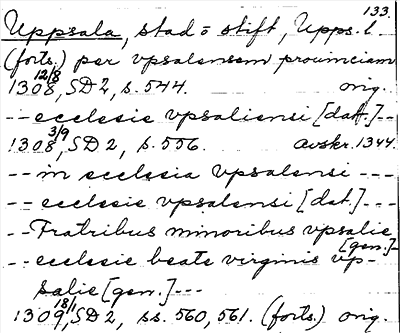 133.
Uppsala, stad o stift, Upps. l.
(forts.) per vpsalensem prouinciam
1308 12/8, SD 2, s. 544. orig.
-- ecclesie vpsaliensi [dat.] --
1308 3/9, SD 2, s. 556. avskr. 1344.
-- in ecclesia vpsalensi ---
-- ecclesie vpsalensi [dat.] ---
-- Fratribus minoribus vpsalie [gen.] --
-- ecclesie beate virginis vp-
salie [gen.] ---
1309 18/1, SD 2, ss. 560, 561. (forts.) orig.